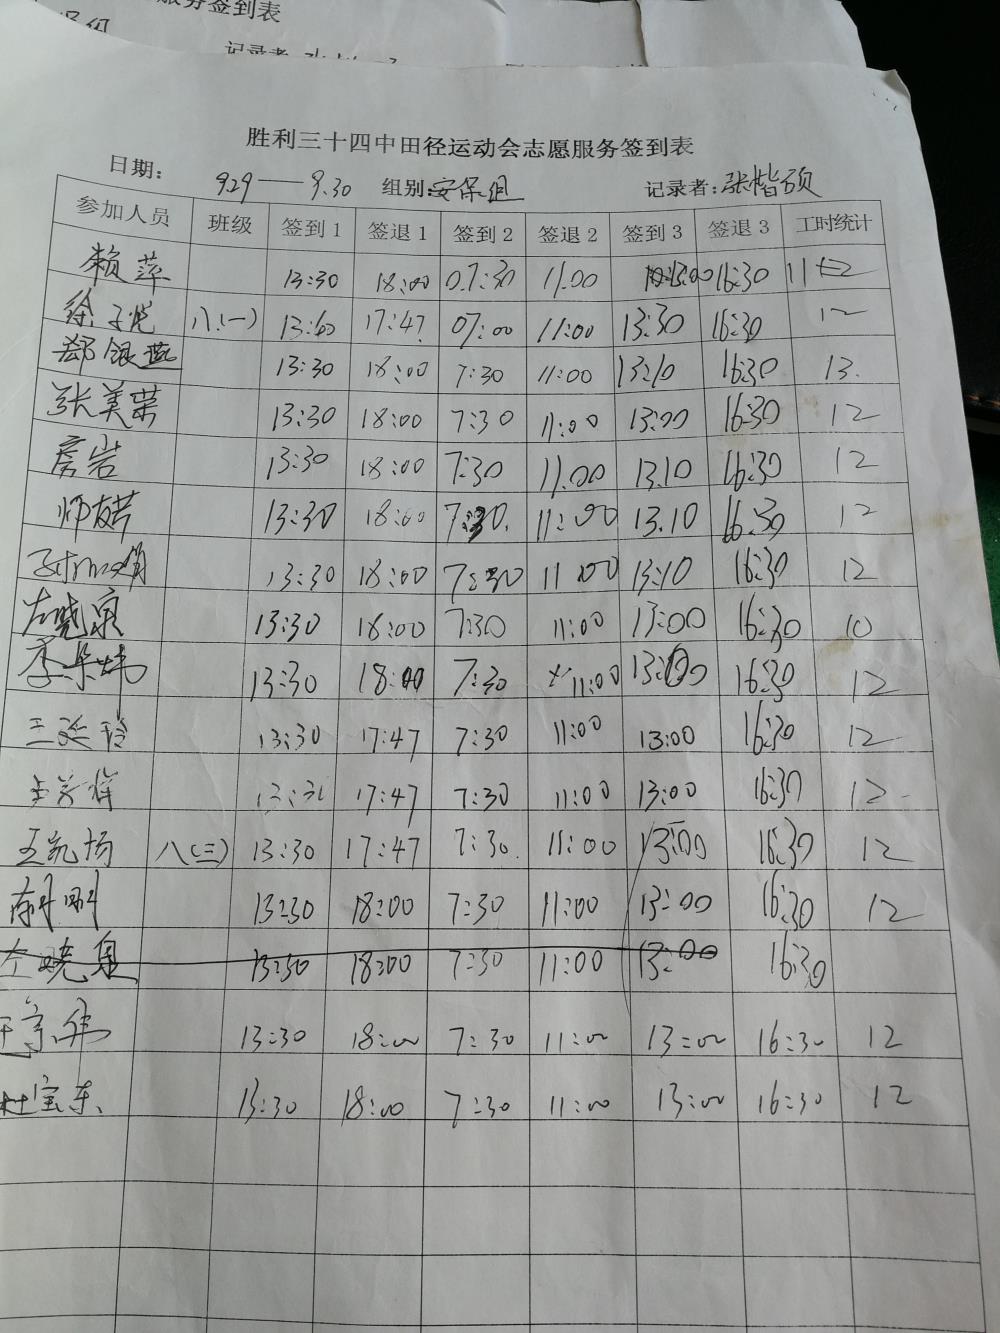 服务签到表
记录者
胜利三十四中田径运动会志愿服务签到表
日期: 9.29——9.30 组别:安保组 记录者:张楷硕
参加人员 班级 签到1 签退1 签到2 签退2 签到3 签退3 工时统计
赖萍 13:30 18:00 07:30 11:00 13:00 16:30
徐子悦 八(一) 17:47 07:00 11:00 13:30 16:30 12
郄银燕 13:30 18:00 7:30 11:00 13:10 16:30 13.
张美荣 13:30 18:00 7:30 11:00 13:00 16:30 12
房岩 13:30 18:00 7:30 11.00 13.10 16:30 12
师友芹 13:30 18:00 7:30. 11:00 13.10 16:30 12
13:30 18:00 7:30 11:00 13:10 16:30 12
左晓泉 13:30 18:00 7:30 11:00 13:00 16:30 10
李 13:30 18:00 7:30 11:00 13:00 16:30 12
王延玲 13:30 17:47 7:30 11:00 13:00 16:30 12
17:47 7:30 11:00 13:00 16:30 12
王凯杨 八(三) 13:30 17:47 7:30 11:00 13:00 16:30 12
13:30 18:00 7:30 11:00 13:00 16:30 12
左晓泉 13:30 18:00 7:30 11:00 13:00 16:30
13:30 18:00 7:30 11:00 13:00 16:30 12
杜宝东 13:30 18:00 7:30 11:00 13:00 16:30 12